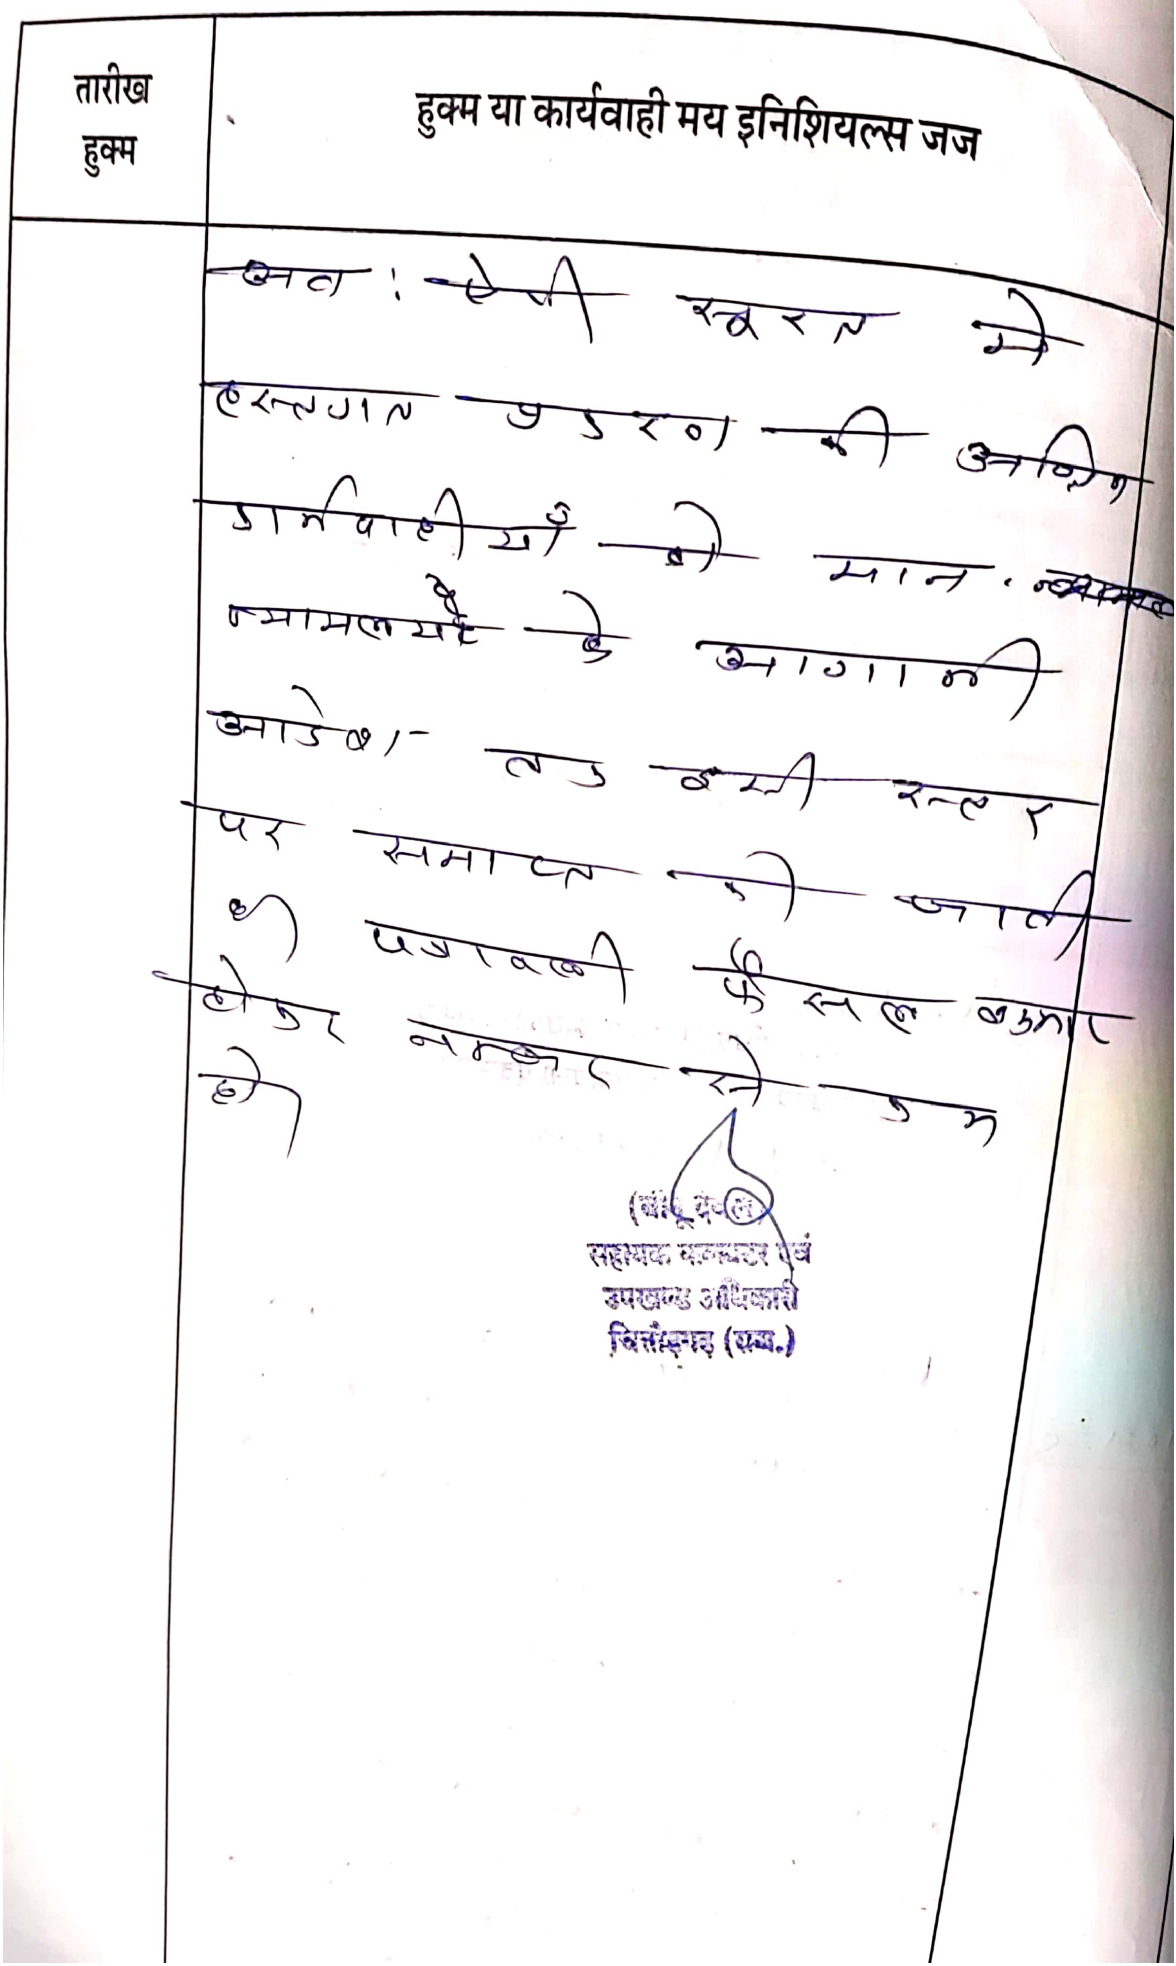 तारीख
हुक्म
हुक्म या कार्यवाही मय इनिशियल्स जज
अत: ऐसी सूरत मे
हस्तगत प्रकरण की अग्रिम
कार्यवाहीयाँ को मान.
न्यायालय के आगामी
आदेश तक इसी स्तर
पर समाप्त की जाती
है। पत्रावली फैसल शुमार
होकर नम्बर से कम
हो।
सहायक कलक्टर एवं
उपखण्ड अधिकारी
चित्तौड़गढ़ (राज.)